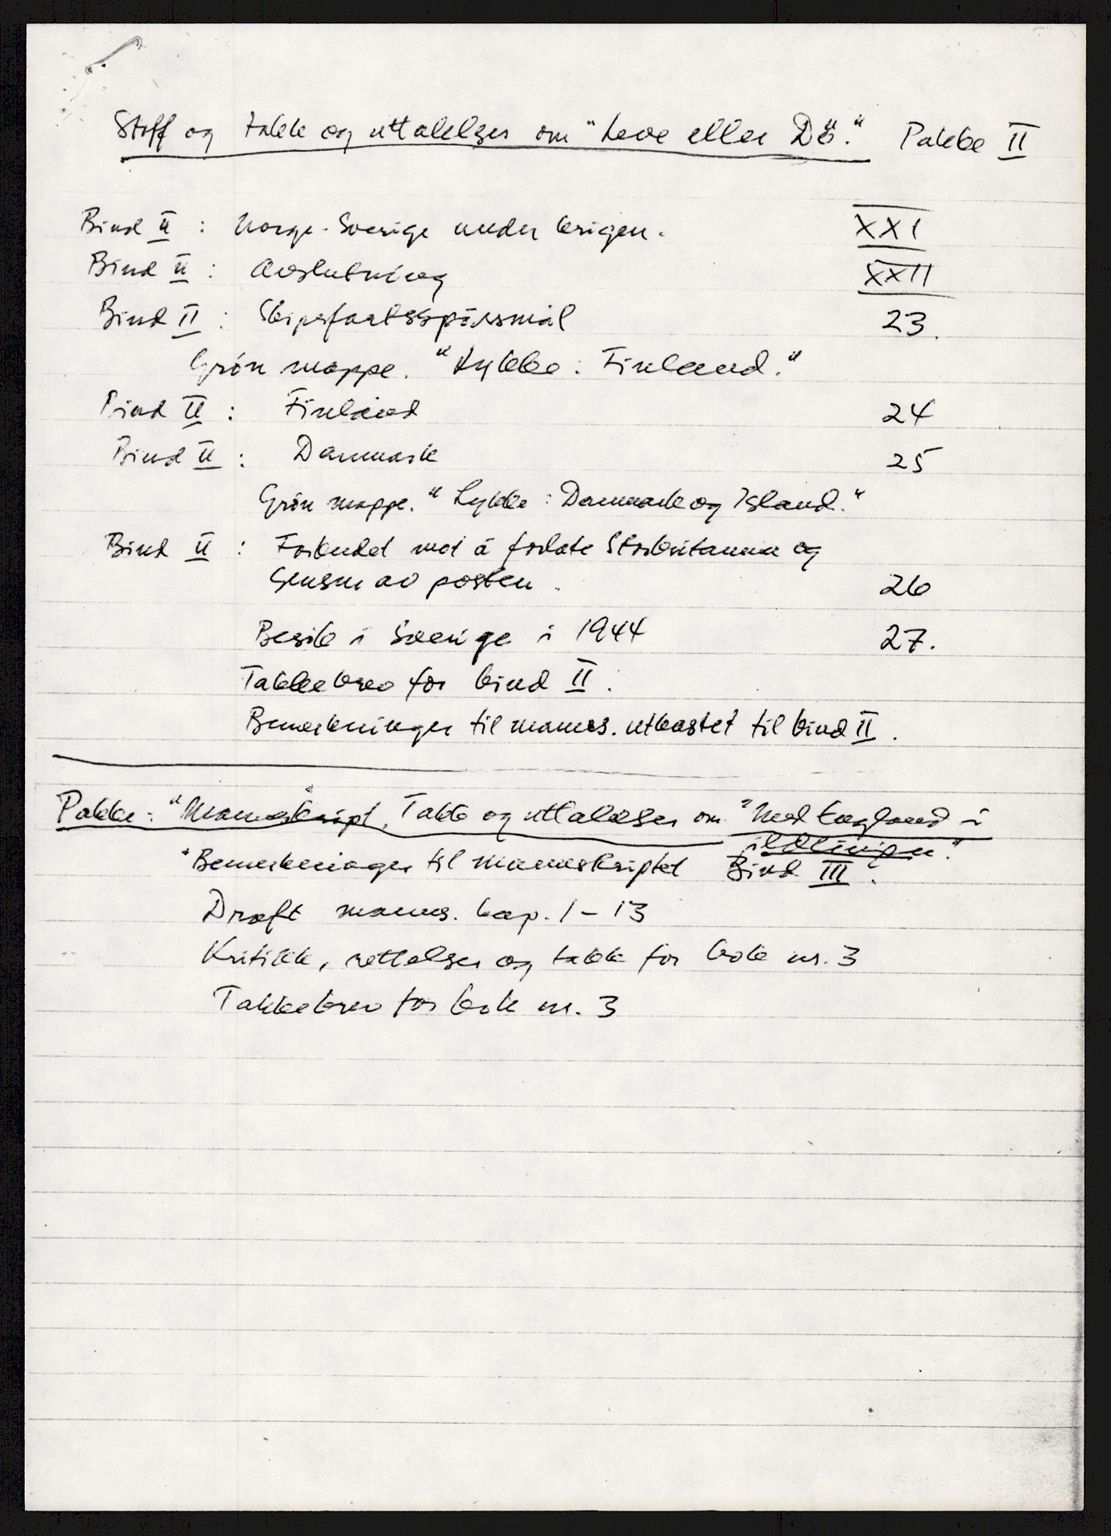 Stoff og takk og uttalelser om "Leve eller Dö." Pakke II
Bind II : Norge-Sverige under krigen. XXI
Bind II : Avslutning XXII
Bind II : Skipsfartsspörsmål 23.
Grön mappe. "Lykke: Finland."
Bind II : Finland 24
Bind II : Danmark 25
Grön mappe. "Lykke: Danmark og Island."
Bind II : Forbudet mot å forlate Storbritannia og
Sensur av posten. 26
Besök i Sverige i 1944 27.
Takkebrev for bind II.
Bemerkninger til manus. utkastet til bind II.
Pakke: "Manuskript, Takk og uttalelser om "Med England i
ildlinjen."
"Bemerkninger til manuskriptet Bind III".
Draft manus. kap. 1-13
Kritikk, rettelser og takk for bok nr. 3
Takkebrev for bok nr. 3